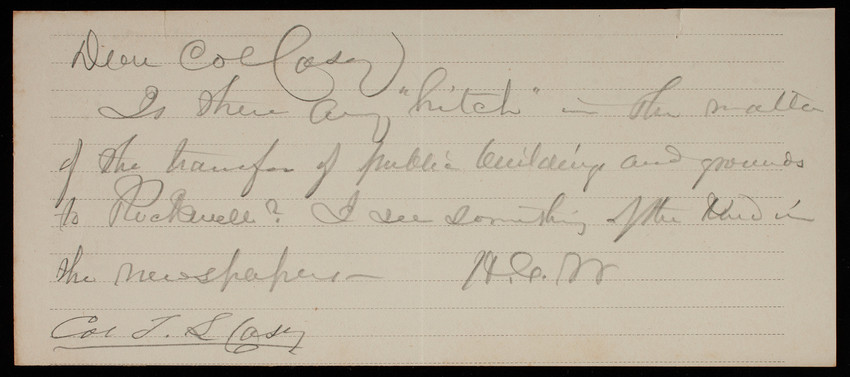 Dear Col Casey
Is there any "hitch" in the matter
of the transfer of public buildings and grounds
to Rockwell? I see something of the kind in
the newspapers —
H. G. W
Col T. L Casey